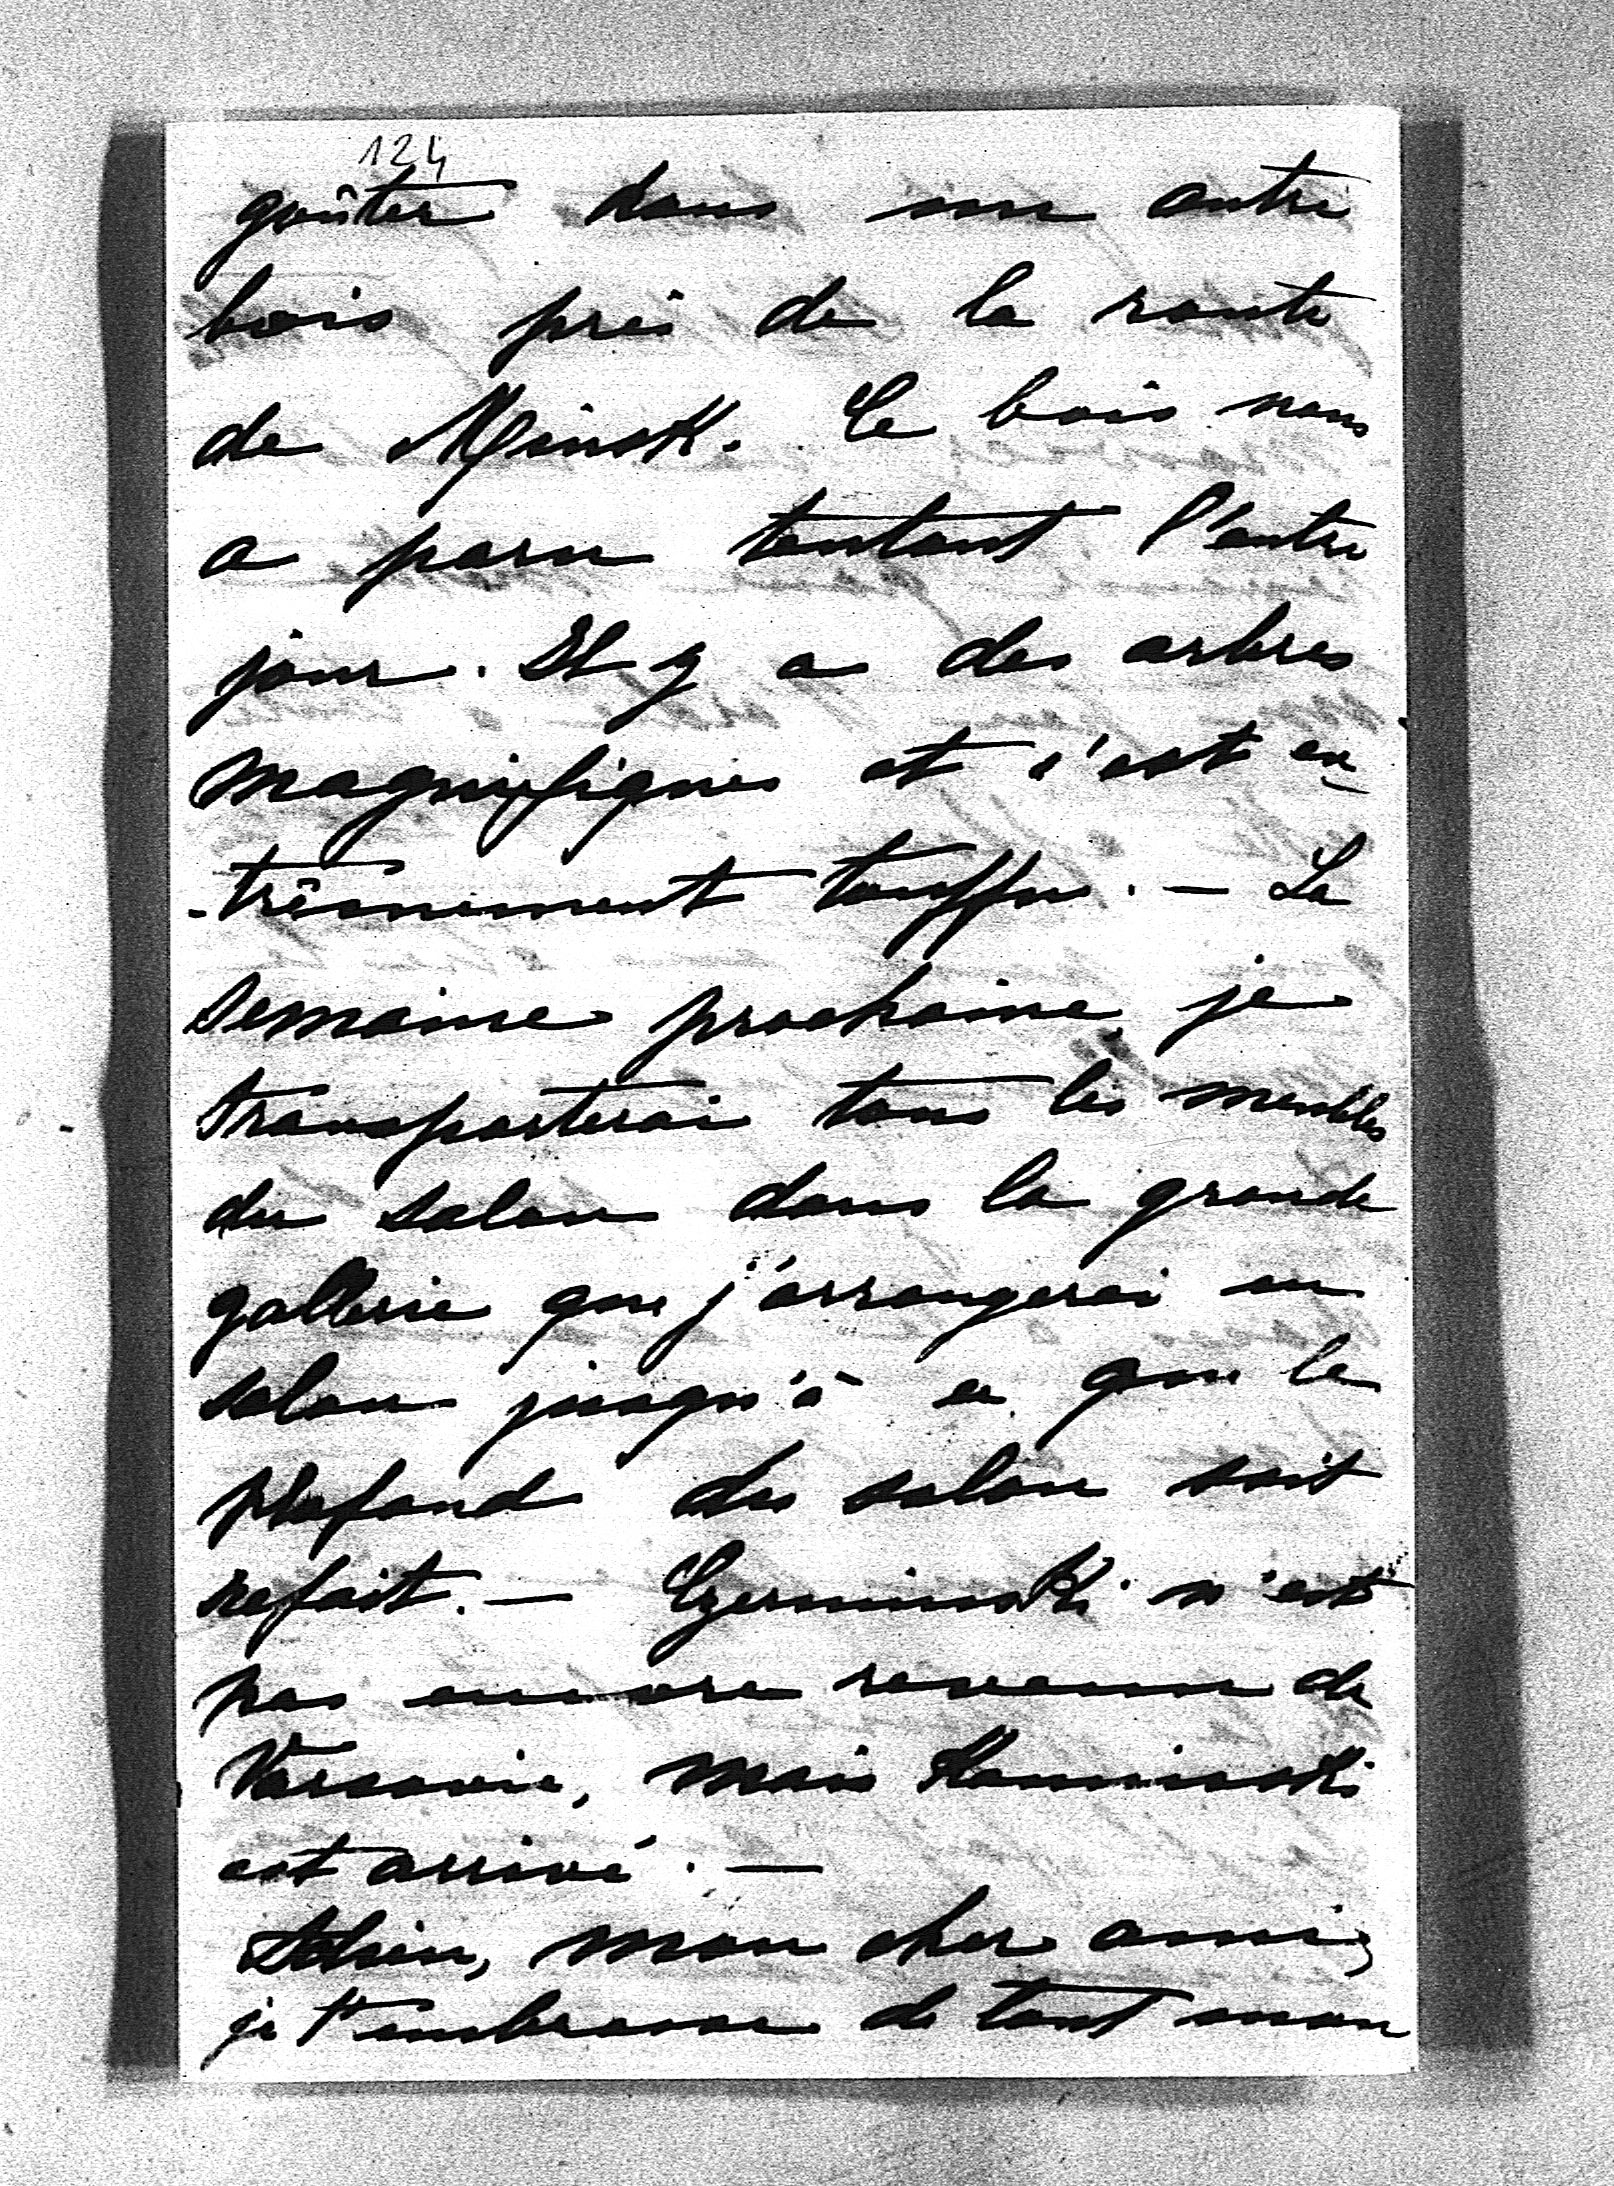 124
goûter dans un autre
bois près de la route
de Minsk. Ce bois nous
a paru tentant l'autre
jour. Il y a des arbres
magnifiques et c'est ex-
-trêmement touffu. — La
semaine prochaine je
transporterai tous les meubles
du salon dans la grande
gallerie que j'arrangerai en
salon jusqu'à ce que le
plafond du salon soit
refait. — Czerminski n'est
pas encore revenu de
Varsovie, mais Kaminski
est arrivé. —
Adieu, mon cher ami,
je t'embrasse de tout mon